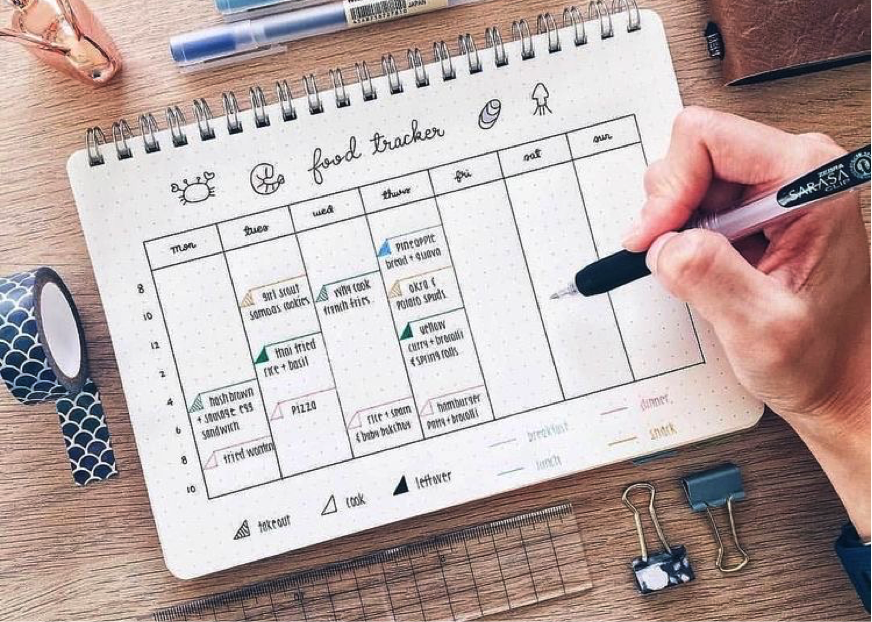 JAPAN
food tracker
ZEBRA
SARASA
CLIP
mon tues wed thurs fri sat sun
8
10
12
2
4
6
8
10
hash brown
+ sausage egg
sandwich
fried wonton
girl scout
samoas cookies
thai fried
rice + basil
pizza
french fries
rice + spam
& baby bokchoy
pineapple
bread + guava
okra &
potato spuds
yellow
curry + brocolli
& spring rolls
hamburger
patty + brocolli
takeout
cook
leftover
breakfast
lunch
dinner
snack